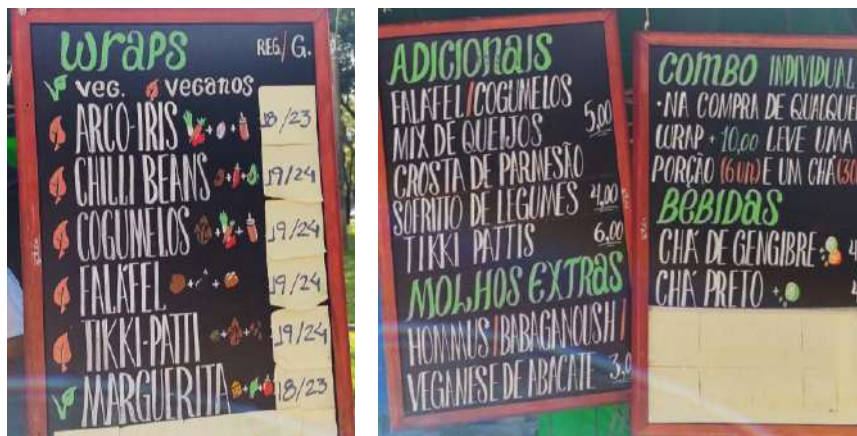 WRAPS REG/ G.
VEG. VEGANOS
ARCO-ÍRIS 18/23
CHILLI BEANS 19/24
COGUMELOS 19/24
FALÁFEL 19/24
TIKKI-PATTI 19/24
MARGUERITA 18/23
ADICIONAIS
FALÁFEL/COGUMELOS
MIX DE QUEIJOS 5,00
CROSTA DE PARMESÃO
SOFRITTO DE LEGUMES 4,00
TIKKI PATTIS 6,00
MOLHOS EXTRAS
HOMMUS/BABAGANOUSH/
VEGANESE DE ABACATE 3,0
COMBO INDIVIDUAL
•NA COMPRA DE QUALQUE
WRAP + 10,00 LEVE UMA
PORÇÃO (6UN) E UM CHÁ (30
BEBIDAS
CHÁ DE GENGIBRE 4
CHÁ PRETO